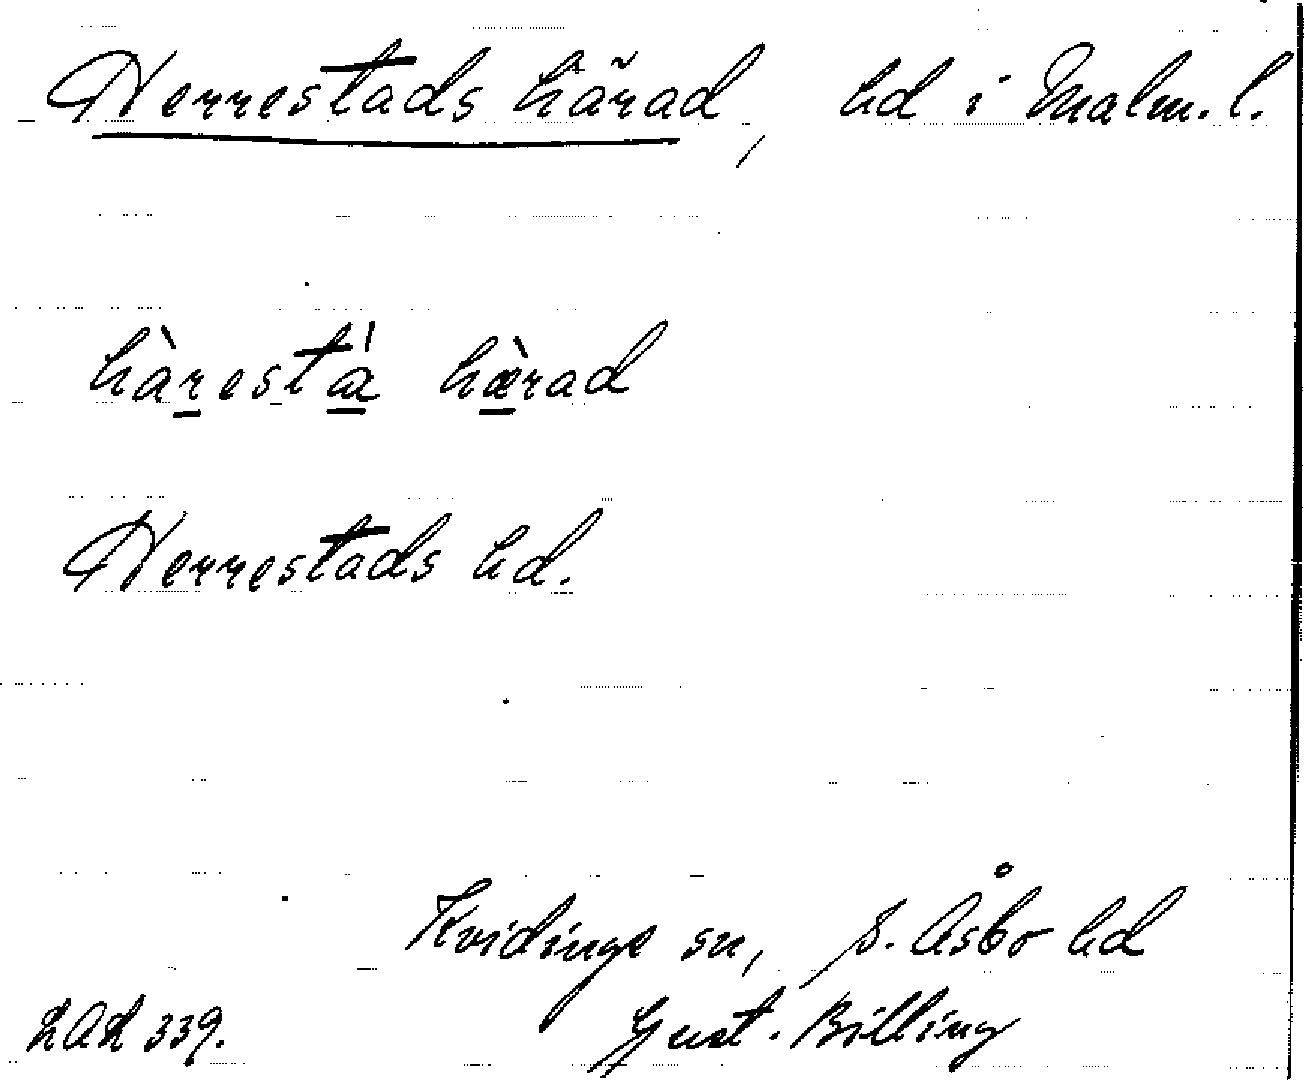 Herrestads härad, hd i Malm. l.
hàrestá hæ̀rad
Herrestads hd.
Kvidinge sn, S. Åsbo hd
LAL 339. Gust. Billing